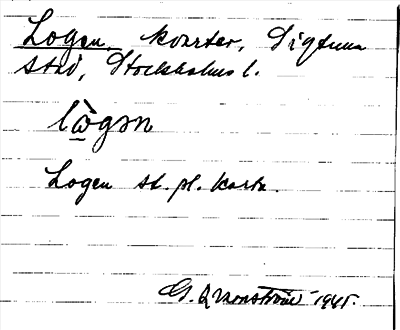 Logen, kvarter, Sigtuna
stad, Stockholms l.
lo̱̊̀gǝn
Logen st. pl. karta.
G. 1945.